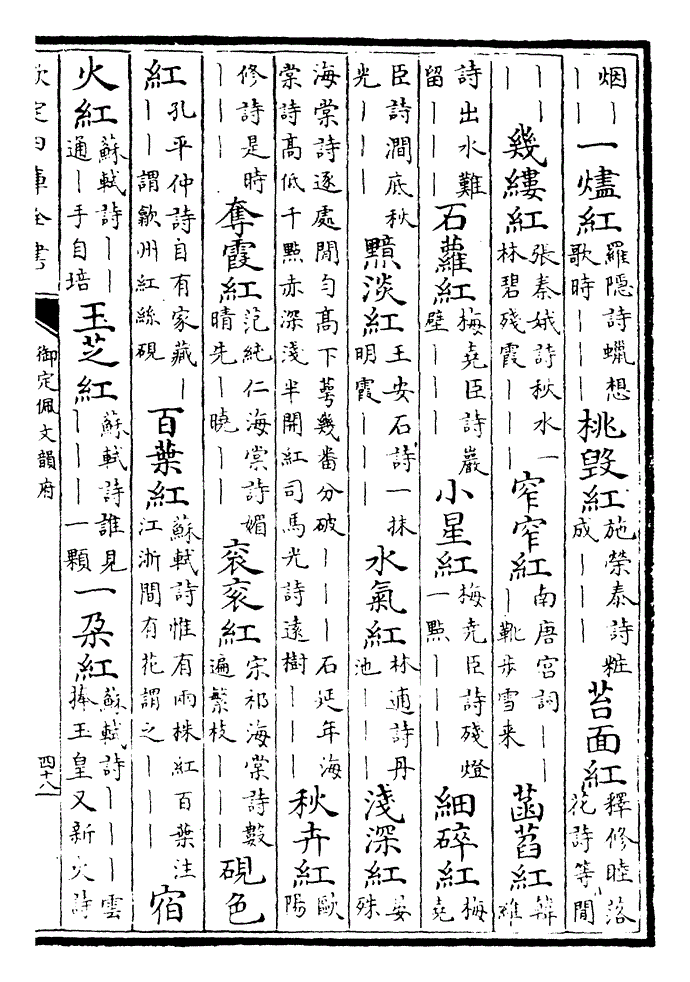 烟｜一燼紅羅隱詩蠟想歌時｜｜｜桃毀紅施榮泰詩粧成｜｜｜苔面紅釋修睦落花詩等閒
｜｜｜幾縷紅張秦娥詩秋水一林碧殘霞｜｜｜窄窄紅南唐宮詞｜｜｜靴步雪来菡萏紅韓維
詩出水難留｜｜｜石蘿紅梅堯臣詩巖壁｜｜｜小星紅梅堯臣詩殘燈一點｜｜｜細碎紅梅堯
臣詩澗底秋光｜｜｜黯淡紅王安石詩一抹明霞｜｜｜水氣紅林逋詩丹池｜｜｜淺深紅晏殊
海棠詩逐處間勻高下蕚幾畨分破｜｜｜石延年海棠詩高低千點赤深淺半開紅司馬光詩遠樹｜｜｜秋卉紅歐陽
修詩是時｜｜｜奪霞紅范純仁海棠詩媚晴先｜曉｜｜衮衮紅宋祁海棠詩數遍繁枝｜｜｜硯色
紅孔平仲詩自有家藏｜｜｜謂歙州紅絲硯百葉紅蘇軾詩惟有兩株紅百葉注江浙間有花謂之｜｜｜宿
火紅蘇軾詩｜｜通｜手自培玉芝紅蘇軾詩誰見｜｜｜一顆一朶紅蘇軾詩｜｜｜雲捧玉皇又新火詩
欽定四庫全書 御定佩文韻府 四十八